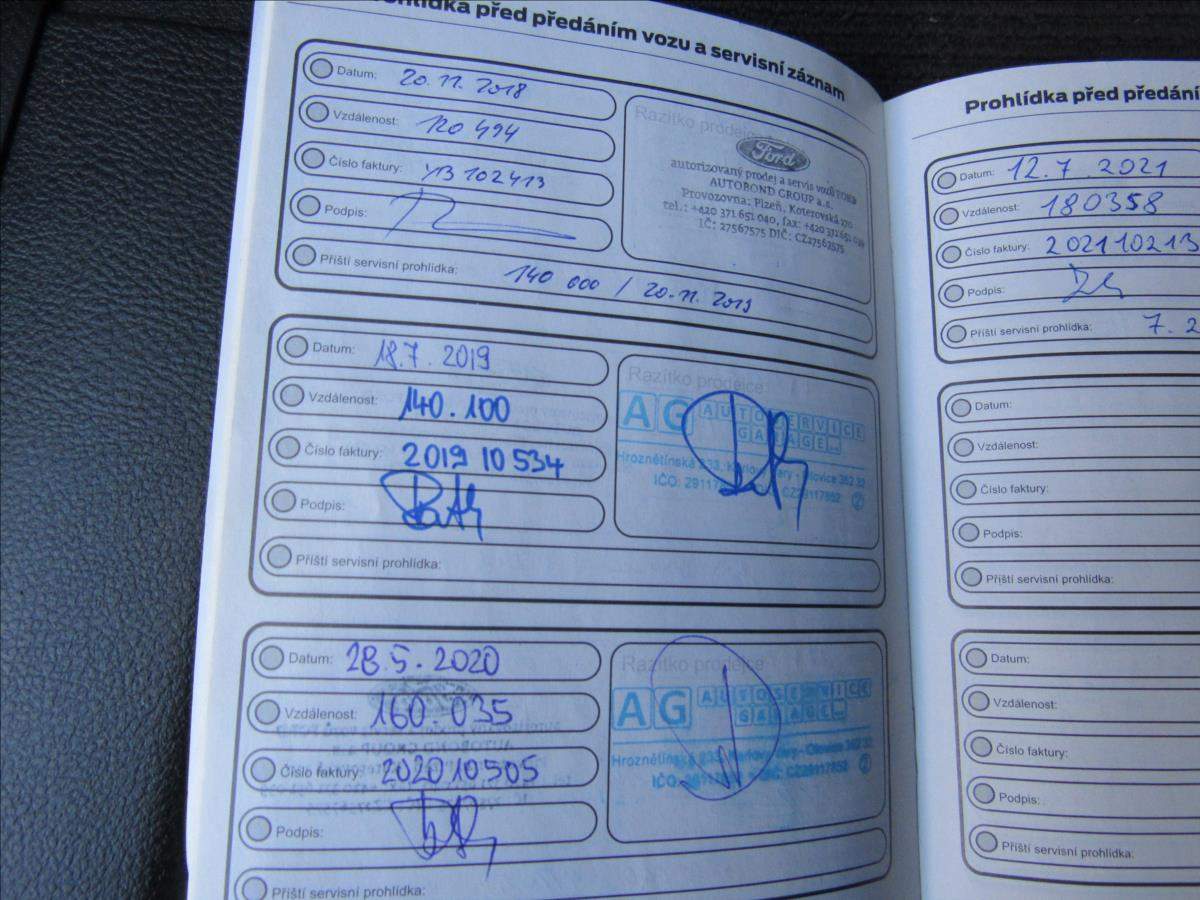 Prohlídka před předáním vozu a servisní záznam
Datum: 20.11.2018
Vzdálenost: 120 494
Číslo faktury: 102413
Podpis:
Příští servisní prohlídka: 140 000 / 20.11.2019
Razítko prodejce
Ford
autorizovaný prodej a servis vozů FORD
AUTOBOND GROUP a.s.
Provozovna: Plzeň, Koterovská
tel.: +420 371 651 040, fax: +420 371 651
IČ: 27567575 DIČ: CZ27567575
Datum: 18.7.2019
Vzdálenost: 140.100
Číslo faktury: 2019 10 534
Podpis:
Příští servisní prohlídka:
Razítko prodejce
AG AUTOSERVICE
GARAGE
Hroznětínská 233, Karlovy Vary - Otovice 362 32
IČO: 29117852 DIČ: CZ29117852 2
Datum: 28.5.2020
Vzdálenost: 160.035
Číslo faktury: 2020 10 505
Podpis:
Příští servisní prohlídka:
Razítko prodejce
AG AUTOSERVICE
GARAGE
Hroznětínská 233, Karlovy Vary - Otovice 362 32
IČO: 29117852 DIČ: CZ29117852 2
Prohlídka před předání
Datum: 12.7.2021
Vzdálenost: 180358
Číslo faktury: 202110213
Podpis:
Příští servisní prohlídka: 7.2
Datum:
Vzdálenost:
Číslo faktury:
Podpis:
Příští servisní prohlídka:
Datum:
Vzdálenost:
Číslo faktury:
Podpis:
Příští servisní prohlídka: